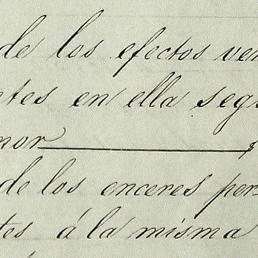 de los efectos ven
ntes en ella segu
nor $
de los enceres per-
tes á la misma